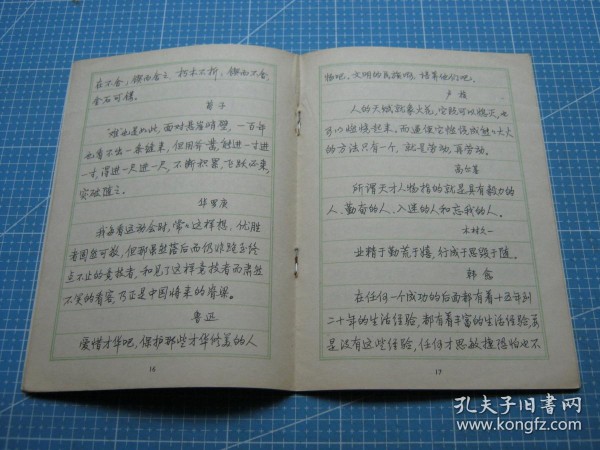 在不舍；锲而舍之，朽木不折，锲而不舍，
金石可镂。
荀子
难也是如此，面对悬崖峭壁，一百年
也看不出一条缝来，但用斧凿，能进一寸进
一寸，得进一尺进一尺，不断积累，飞跃必来，
突破随之。
华罗庚
我每看运动会时，常常这样想，优胜
者固然可敬，但那虽然落后而仍非跑至终
点不止的竞技者，和见了这样竞技者而肃然
不笑的看客，乃正是中国将来的脊梁。
鲁迅
爱惜才华吧，保护那些才华修美的人
16
物吧，文明的民族啊，培养他们吧。
卢梭
人的天赋就象火花，它既可以熄灭，也
可以燃烧起来，而逼使它燃烧成熊熊大火
的方法只有一个，就是劳动，再劳动。
高尔基
所谓天才人物指的就是具有毅力的
人、勤奋的人、入迷的人和忘我的人。
木村久一
业精于勤荒于嬉，行成于思毁于随。
韩愈
在任何一个成功的后面都有着十五年到
二十年的生活经验，都有着丰富的生活经验，要
是没有这些经验，任何才思敏捷恐怕也不
17
孔夫子旧书网
www.kongfz.com